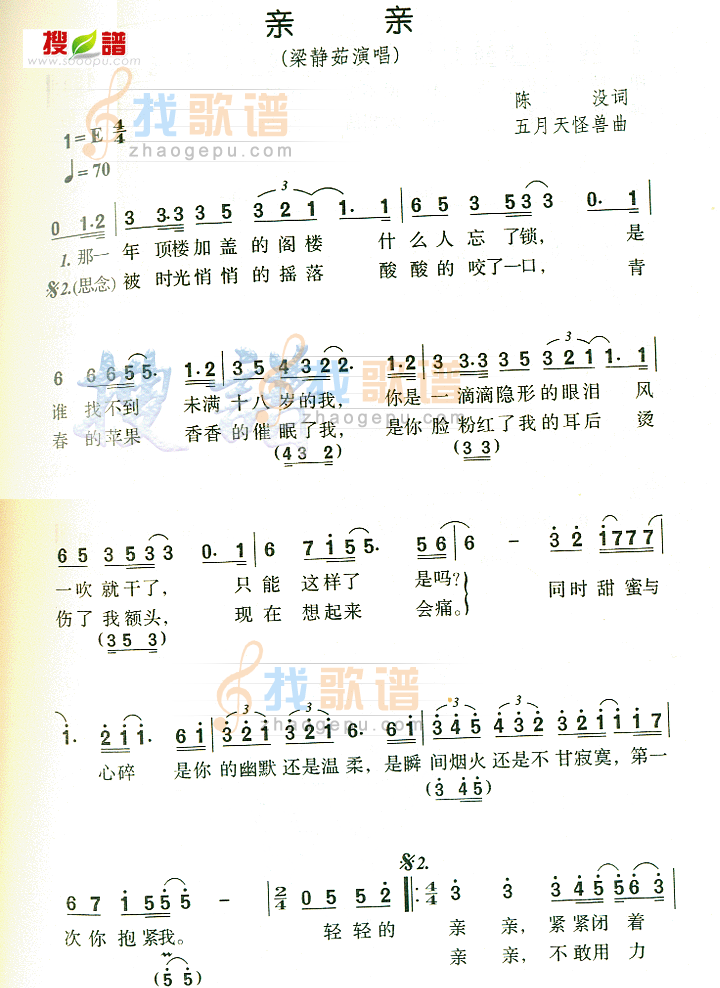 亲 亲
搜谱
www.sooopu.com
(梁静茹演唱)
找歌谱
zhaogepu.com
陈 没词
五月天怪兽曲
1=E 4/4
♩=70
0 1·2 | 3 3·3 3 5 3 2 1 1· 1 | 6 5 3 5 3 3 0· 1 |
1.那一 年 顶楼加盖的阁楼 什么人忘了锁, 是
𝄋2.(思念) 被 时光悄悄的摇落 酸酸的咬了一口, 青
6 6 6 5 5· 1·2 | 3 5 4 3 2 2· 1·2 | 3 3·3 3 5 3 2 1 1· 1 |
谁 找不到 未满 十八岁的我, 你是一滴滴隐形的眼泪 风
春 的苹果 香香的催眠了我, 是你脸粉红了我的耳后 烫
(4 3 2) (3 3)
搜谱
找歌谱
zhaogepu.com
6 5 3 5 3 3 0· 1 | 6 6 7 1 5 5· 5 6 | 6 - 3 2 1 7 7 7 |
一吹就干了, 只能这样了 是吗? 同时甜蜜与
伤了我额头, 现在想起来 会痛。
(3 5 3)
找歌谱
zhaogepu.com
1· 2 1 1· 6 1 | 3 2 1 3 2 1 6· 6 1 | 3 4 5 4 3 2 3 2 1 1 1 1 7 |
心碎 是你的幽默还是温柔, 是瞬间烟火还是不甘寂寞, 第一
(3 4 5)
6 7 1 5 5 5 - | 2/4 0 5 5 2 |: 4/4 3 3 3 4 5 5 6 3 |
𝄋2.
次你抱紧我。 轻轻的 亲 亲, 紧紧闭着
亲 亲, 不敢用力
(5 5)